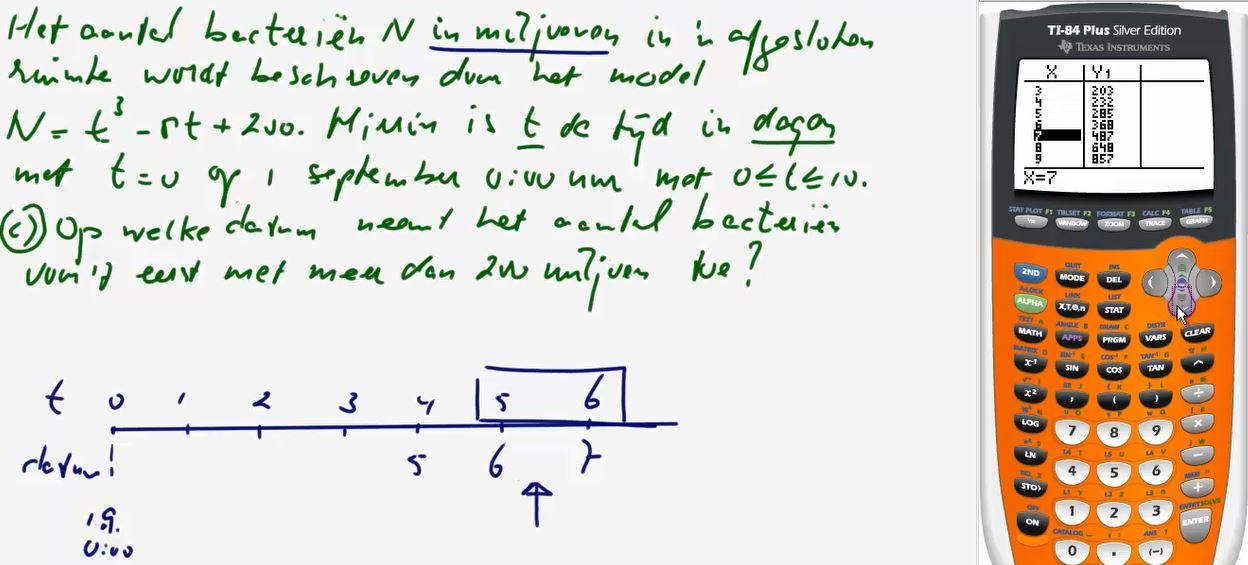 Het aantal bacteriën N in miljoenen in 'n afgesloten
ruimte wordt beschreven door het model
N = t³ - 5t + 200. Hierin is t de tijd in dagen
met t = 0 op 1 september 0:00 uur met 0 ≤ t ≤ 10.
c) Op welke datum neemt het aantal bacteriën
voor 't eerst met meer dan 200 miljoen toe?
t 0 1 2 3 4 5 6
datum! 5 6 7
1.9.
0:00
TI-84 Plus Silver Edition
TEXAS INSTRUMENTS
X Y1
3 203
4 232
5 285
6 368
7 487
8 648
9 857
X=7
STAT PLOT F1 TBLSET F2 FORMAT F3 CALC F4 TABLE F5
Y= WINDOW ZOOM TRACE GRAPH
QUIT INS
2ND MODE DEL
A-LOCK LINK LIST
ALPHA X,T,Θ,n STAT
TEST A ANGLE B DRAW C DISTR
MATH APPS PRGM VARS CLEAR
MATRIX D SIN⁻¹ E COS⁻¹ F TAN⁻¹ G π H
x⁻¹ SIN COS TAN ^
√ I EE J { K } L e M
x² , ( ) ÷
10ˣ N u O v P w Q [ R
LOG 7 8 9 ×
eˣ S L4 T L5 U L6 V ] W
LN 4 5 6 −
RCL X L1 Y L2 Z L3 θ MEM "
STO› 1 2 3 +
OFF CATALOG i : ANS ? ENTRY SOLVE
ON 0 . (−) ENTER